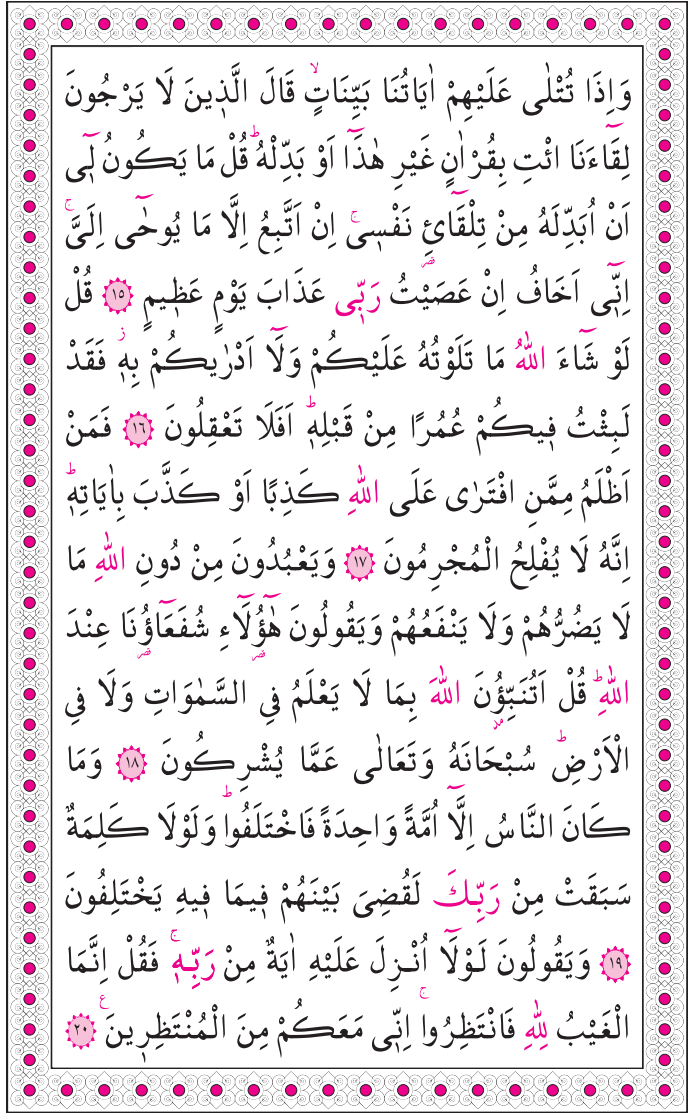 وَاِذَا تُتْلٰى عَلَيْهِمْ اٰيَاتُنَا بَيِّنَاتٍۙ قَالَ الَّذ۪ينَ لَا يَرْجُونَ
لِقَٓاءَنَا ائْتِ بِقُرْاٰنٍ غَيْرِ هٰذَٓا اَوْ بَدِّلْهُۜ قُلْ مَا يَكُونُ ل۪ٓي
اَنْ اُبَدِّلَهُ مِنْ تِلْقَٓائِ۬ نَفْس۪يۚ اِنْ اَتَّبِعُ اِلَّا مَا يُوحٰٓى اِلَيَّۚ
اِنّ۪ٓي اَخَافُ اِنْ عَصَيْتُ رَبّ۪ي عَذَابَ يَوْمٍ عَظ۪يمٍ ﴿١٥﴾ قُلْ
لَوْ شَٓاءَ اللّٰهُ مَا تَلَوْتُهُ عَلَيْكُمْ وَلَٓا اَدْرٰيكُمْ بِه۪ۘ فَقَدْ
لَبِثْتُ ف۪يكُمْ عُمُرًا مِنْ قَبْلِه۪ۜ اَفَلَا تَعْقِلُونَ ﴿١٦﴾ فَمَنْ
اَظْلَمُ مِمَّنِ افْتَرٰى عَلَى اللّٰهِ كَذِبًا اَوْ كَذَّبَ بِاٰيَاتِه۪ۜ
اِنَّهُ لَا يُفْلِحُ الْمُجْرِمُونَ ﴿١٧﴾ وَيَعْبُدُونَ مِنْ دُونِ اللّٰهِ مَا
لَا يَضُرُّهُمْ وَلَا يَنْفَعُهُمْ وَيَقُولُونَ هٰٓؤُ۬لَٓاءِ شُفَعَٓاؤُ۬نَا عِنْدَ
اللّٰهِۜ قُلْ اَتُنَبِّؤُ۫نَ اللّٰهَ بِمَا لَا يَعْلَمُ فِي السَّمٰوَاتِ وَلَا فِي
الْاَرْضِۜ سُبْحَانَهُ وَتَعَالٰى عَمَّا يُشْرِكُونَ ﴿١٨﴾ وَمَا
كَانَ النَّاسُ اِلَّٓا اُمَّةً وَاحِدَةً فَاخْتَلَفُواۜ وَلَوْلَا كَلِمَةٌ
سَبَقَتْ مِنْ رَبِّكَ لَقُضِيَ بَيْنَهُمْ ف۪يمَا ف۪يهِ يَخْتَلِفُونَ
﴿١٩﴾ وَيَقُولُونَ لَوْلَٓا اُنْزِلَ عَلَيْهِ اٰيَةٌ مِنْ رَبِّه۪ۚ فَقُلْ اِنَّمَا
الْغَيْبُ لِلّٰهِ فَانْتَظِرُواۚ اِنّ۪ي مَعَكُمْ مِنَ الْمُنْتَظِر۪ينَ۟ ﴿٢٠﴾